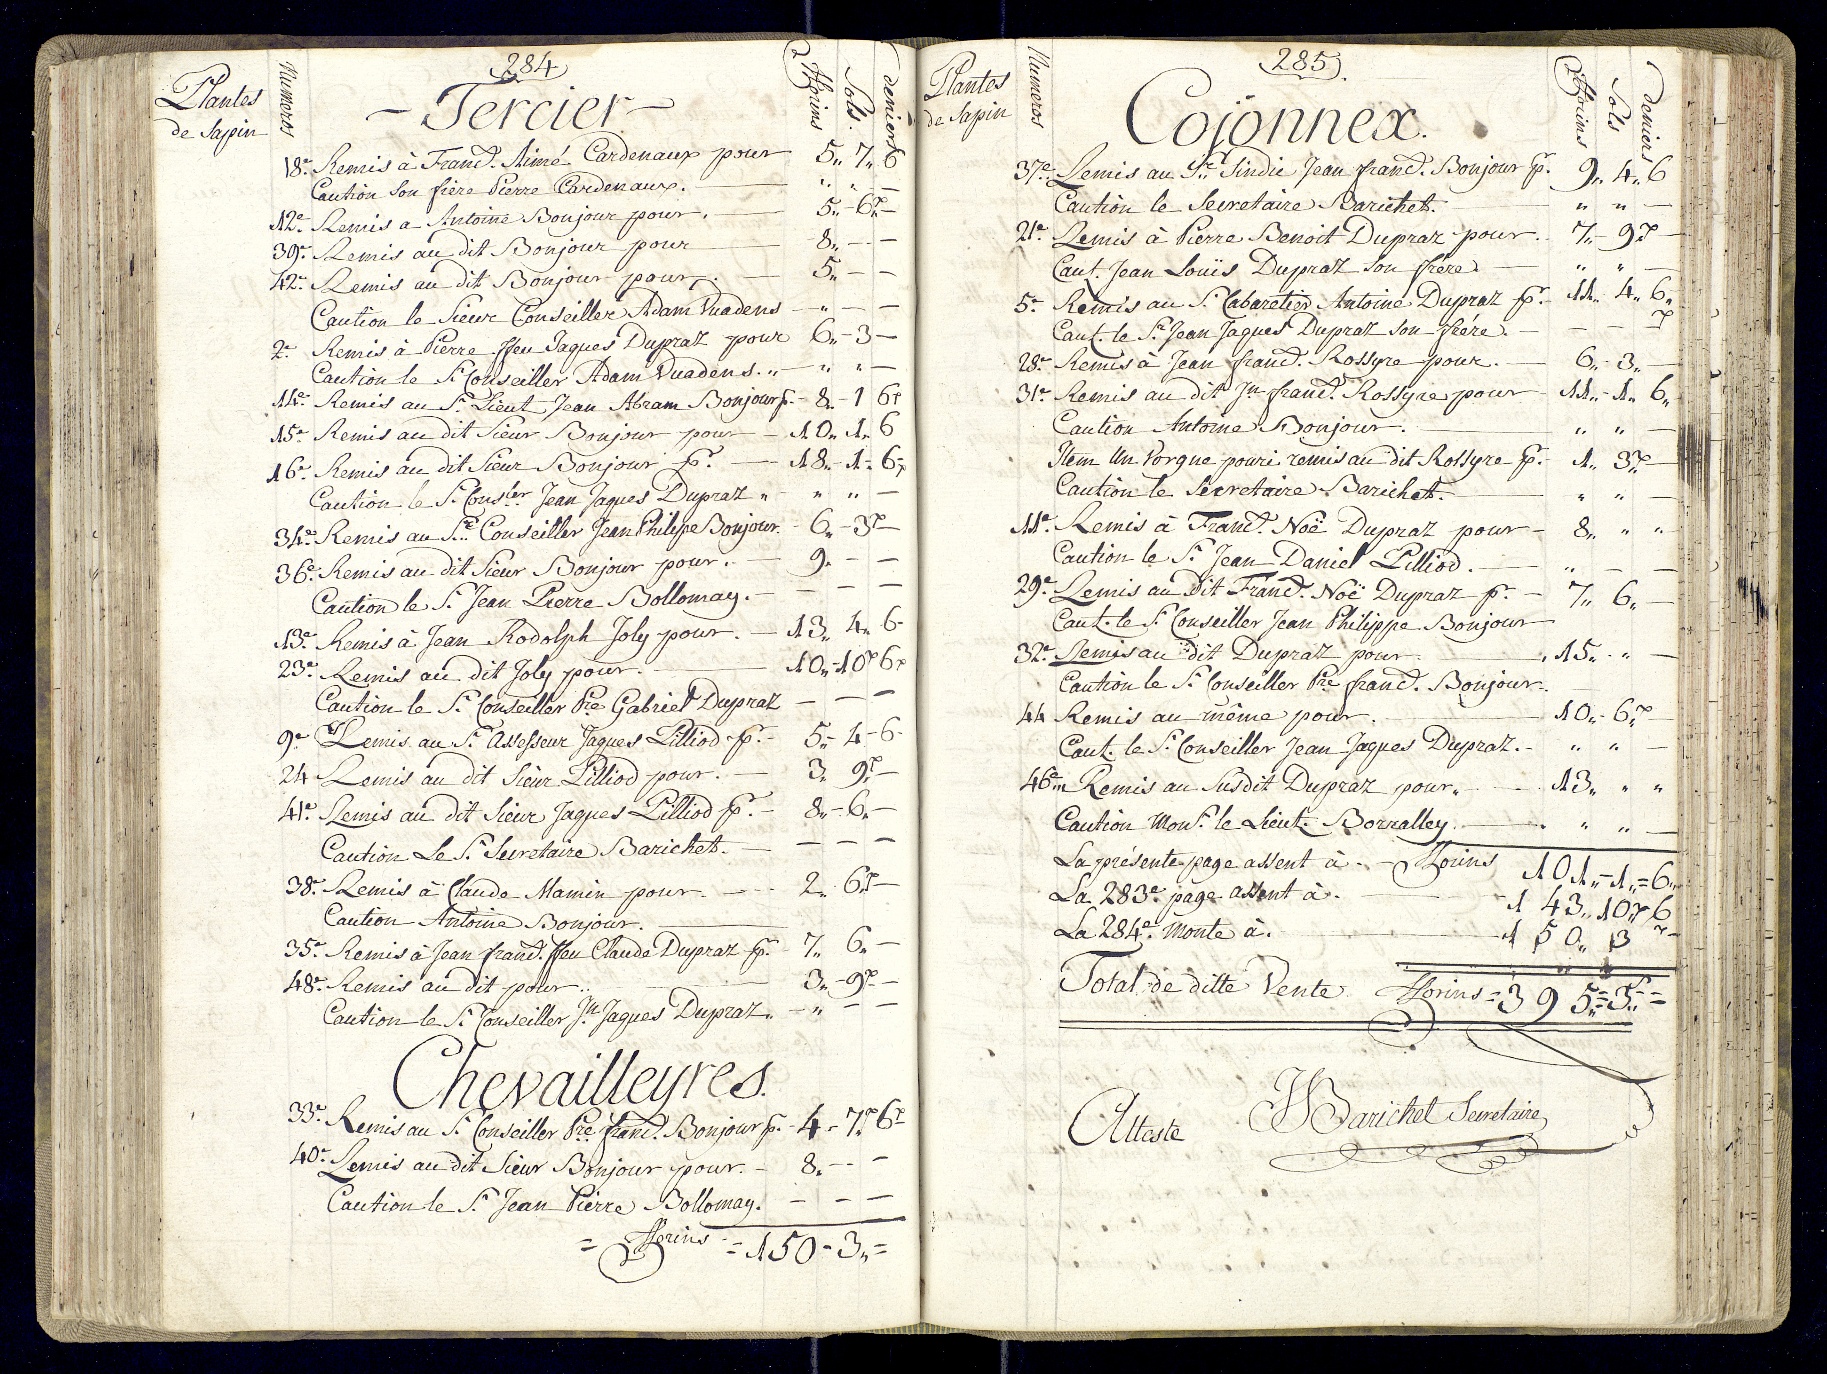 284
Plantes
de Sapin
Numeros
Florins
Sols.
deniers
Tercier
18e. Remis à Francs. Aimé Cardenaux pour 5,, 7,, 6
Caution Son frère Pierre Cardenaux. ,, ,, —
12e. Remis a Antoine Bonjour pour. — 5,, - 6,, —
39e. Remis au dit Bonjour pour — 8,, — —
42e. Remis au dit Bonjour pour. — 5,, — —
Caution le Sieur Conseiller Adam Vuadens — ,, — —
2e. Remis à Pierre ffeu Jaques Dupraz pour 6,, - 3 —
Caution le Sr. Conseiller Adam Vuadens. ,, — ,, ,, —
14e. Remis au Sr. Lieut. Jean Abram Bonjour p. - 8,, - 1 6
15e. Remis au dit Sieur Bonjour pour — 10,, 1,, 6
16e. Remis au dit Sieur Bonjour pr. — 18,, - 1,, 6
Caution le Sr. Consler Jean Jaques Dupraz ,, - ,, ,, —
34e. Remis au Sr. Conseiller Jean Philipe Bonjour. - 6,, - 3 —
36e. Remis au dit Sieur Bonjour pour. — 9,, — —
Caution le Sr. Jean Pierre Bollomay. — — — —
13e. Remis à Jean Rodolph Joly pour. — 13,, 4,, 6 -
23e. Remis au dit Joly pour. — 10,, - 10 6
Caution le Sr. Conseiller Pre Gabriel Dupraz — — —
9e. Remis au Sr. Assesseur Jaques Pilliod pr. - 5,, - 4 - 6 -
24 Remis au dit Sieur Pilliod pour. — 3,, 9 —
41e. Remis au dit Sieur Jaques Pilliod pr. - 8,, - 6,, —
Caution Le Sr. Secretaire Barichet. — — — —
38e. Remis à Claude Mamin pour. — 2,, 6 —
Caution Antoine Bonjour. —
35e. Remis à Jean francs. ffeu Claude Dupraz pr. - 7,, 6,, —
48e. Remis au dit pour. — 3,, - 9 —
Caution le Sr. Conseiller Jn Jaques Dupraz. - ,, — —
Chevailleyres.
33e. Remis au Sr. Conseiller Pre. francs. Bonjour p. - 4 - 7 6
40e. Remis au dit Sieur Bonjour pour. - 8,, - —
Caution le Sr. Jean Pierre Bollomay. — — —
= Florins = 150 - 3,, =
285.
Plantes
de Sapin
Numeros
Florins
Sols
deniers
Cojonnex.
37e. Remis au Sr. Sindic Jean francs. Bonjour pr. 9,, 4,, 6
Caution le Secretaire Barichet. — ,, ,, —
21e. Remis à Pierre Benoit Dupraz pour. 7,, - 9 —
Caut. Jean Louïs Dupraz son frère. — ,, ,, —
5e. Remis au Sr. Cabaretier Antoine Dupraz pr. 11,, 4,, 6,,
Caut. le Sr. Jean Jaques Dupraz son frére. — — —
28e. Remis à Jean francs. Rossyre pour. — 6,, - 3,, —
31e. Remis au dit Jn francs. Rossyre pour — 11,, - 1,, 6,,
Caution Antoine Bonjour. — ,, ,, —
Item Un Vorgne pouri remis au dit Rossyre pr. - 1,, 3 —
Caution le Secretaire Barichet. — ,, ,, —
11e. Remis à Francs. Noë Dupraz pour — 8,, ,, ,,
Caution le Sr. Jean Daniel Pilliod. — ,, — —
29e. Remis au dit Francs. Noë Dupraz pr. — 7,, 6,, —
Caut. le Sr. Conseiller Jean Philippe Bonjour —
32e. Remis au dit Dupraz pour — 15,, - ,, —
Caution le Sr. Conseiller Pre francs. Bonjour. —
44 Remis au même pour. — 10,, - 6 —
Caut. le Sr. Conseiller Jean Jaques Dupraz. - ,, ,, —
46e. Remis au Susdit Dupraz pour,, — 13,, ,, ,,
Caution Monsr. le Lieut. Borralley. — ,, ,, —
La présente page assent à. — Florins 101,, - 1,, = 6,,
La 283e page assent à. — 143,, 10 6
La 284e. Monte à. — 150,, 3 -
Total de ditte Vente Florins = 395 = 3 =
Atteste
Barichet Secretaire